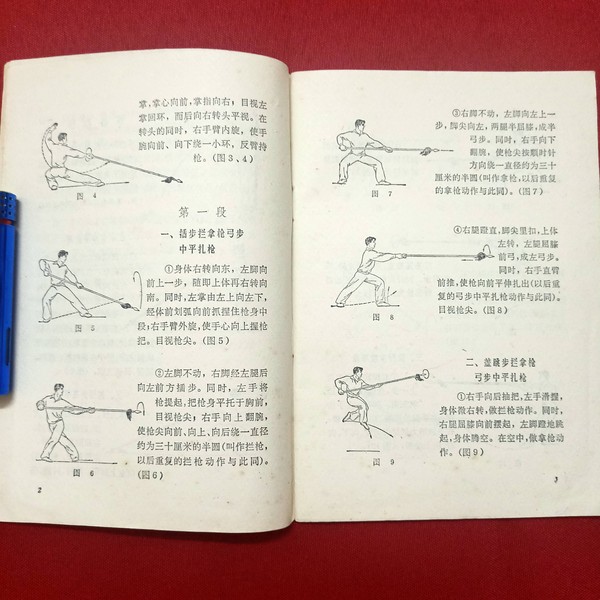 掌,掌心向前,掌指向右;目视左
掌回环,而后向右转头平视。在
转头的同时,右手臂内旋,使手
腕向前、向下绕一小环,反臂持
枪。(图3、4)
图 4
第一段
一、插步拦拿枪弓步
中平扎枪
①身体右转向东,左脚向
前上一步,随即上体再右转向
南。同时,左掌由左上向左下,
经体前划弧向前抓握住枪身中
段;右手臂外旋,使手心向上握枪
把。目视枪尖。(图5)
图 5
②左脚不动,右脚经左腿后
向左前方插步。同时,左手将
枪提起,把枪身平托于胸前,
目视枪尖;右手向上翻腕,
使枪尖向前、向上、向后绕一直径
约为三十厘米的半圆(叫作拦枪,
以后重复的拦枪动作与此同)。
(图6)
图 6
2
③右脚不动,左脚向左上一
步,脚尖向左,两腿半屈膝,成半
弓步。同时,右手向下
翻腕,使枪尖按顺时针
方向绕一直径约为三十
厘米的半圆(叫作拿枪,以后重复
的拿枪动作与此同)。(图7)
图 7
④右腿蹬直,脚尖里扣,上体
左转,左腿屈膝
前弓,成左弓步。
同时,右手直臂
前推,使枪向前平伸扎出(以后重
复的弓步中平扎枪动作与此同)。
目视枪尖。(图8)
图 8
二、盖跳步拦拿枪
弓步中平扎枪
①右手向后抽把,左手滑握,
身体微右转,做拦枪动作。同时,
右腿屈膝向前摆起,左脚蹬地跳
起,身体腾空。在空中,做拿枪动
作。(图9)
图 9
3